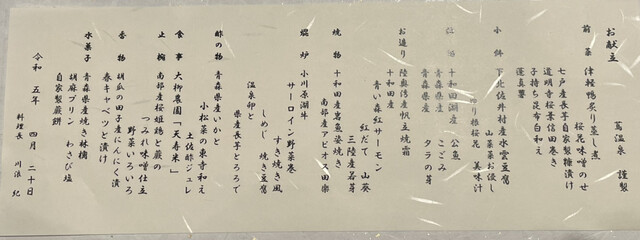 お献立 蔦温泉 謹製
前菜 津軽鴨炙り蒸し煮
桜花味噌のせ
七戸産長芋自家製糠漬け
道明寺桜景信田巻き
子持ち昆布白和え
蓬真薯
小鉢 下北佐井村産水雲豆腐
山菜菜お浸し
桜花 美味汁
十和田湖産 公魚
青森県産 こごみ
青森県産 タラの芽
お造り 陸奥湾産帆立焼霜
青い森紅サーモン
十和田産
紅だて 山葵
三陸産若芽
焼物 十和田産岩魚姿焼き
南部産アピオス田楽
焜炉 小川原湖牛
サーロイン野菜巻
すき焼き風
しめじ 焼き豆腐
温泉卵と
県産長芋とろろで
酢の物 青森県産いかと
小松菜の東寺和え
土佐酢ジュレ
食事 大柳農園「天寿米」
止椀 南部産桜姫鶏と蕨の
つみれ味噌仕立
野菜いろいろ
香物 胡瓜の田子産にんにく漬
春キャベツと漬け
水菓子 青森県産焼き林檎
胡麻プリン わさび塩
自家製蕨餅
令和 五年 四月 二十日
料理長